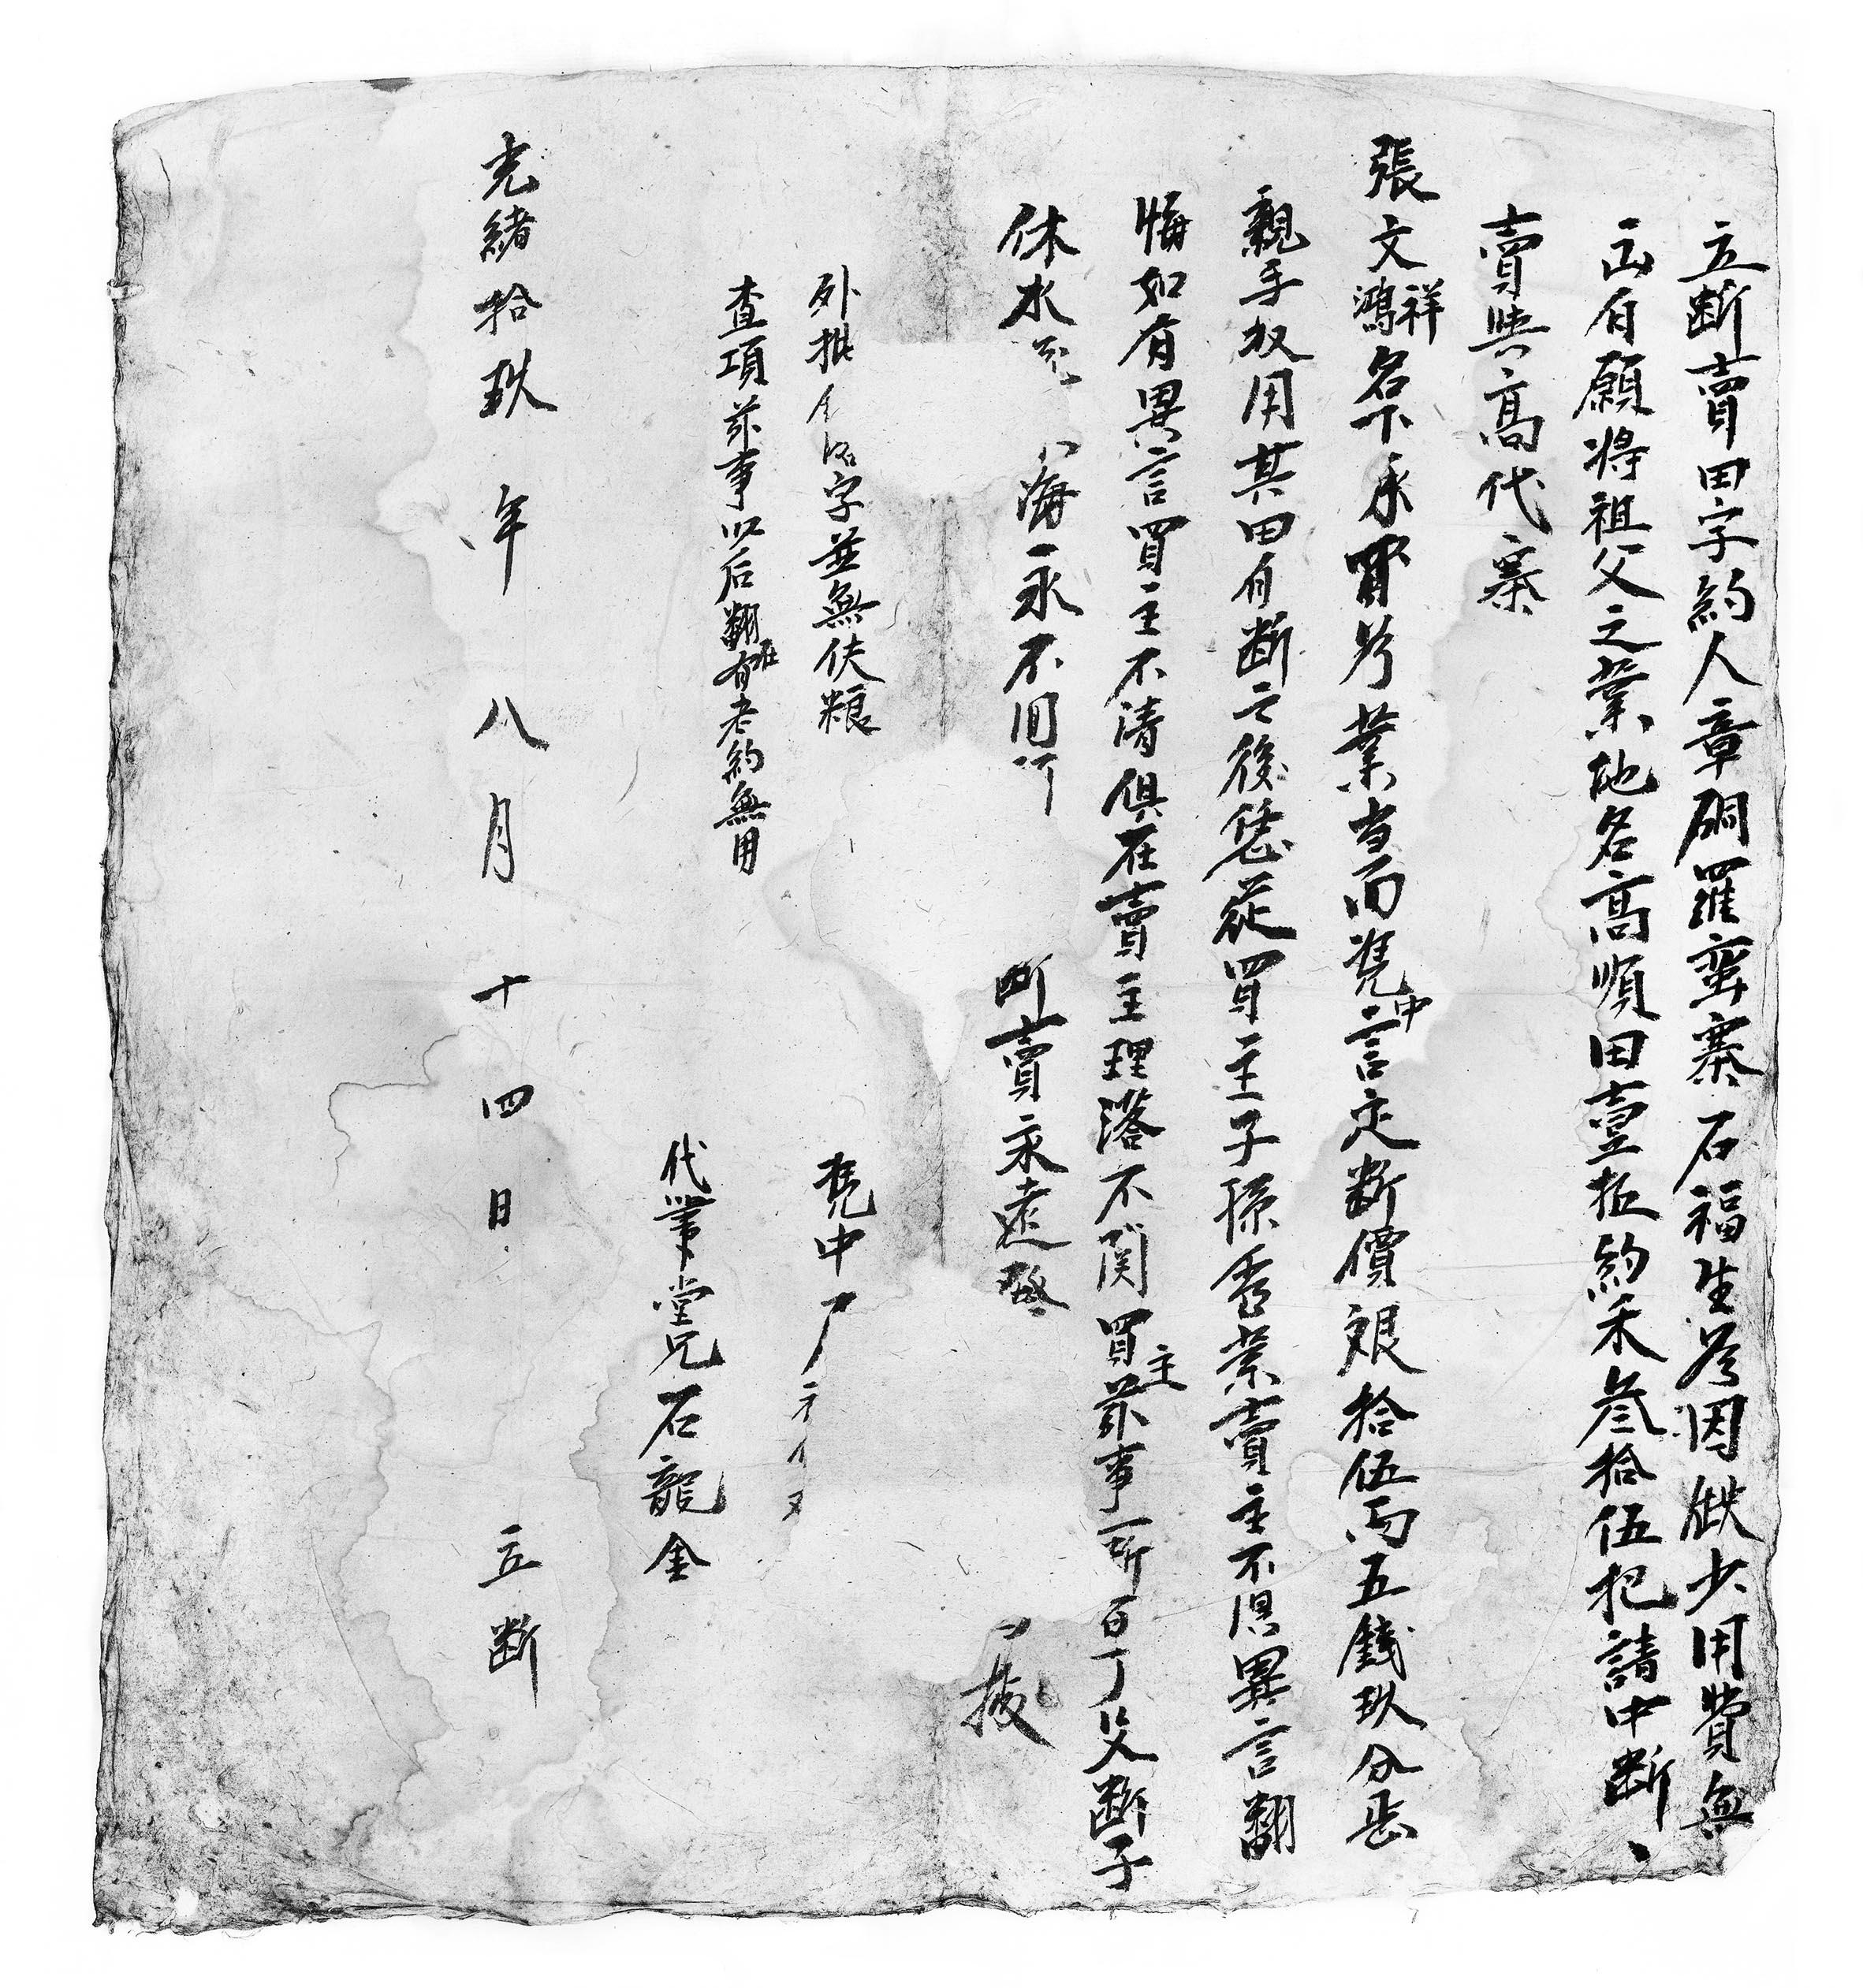 立斷賣田字約人章硐羅蛮寨石福生爲因缺少用費無
処自願將祖父之業地名髙順田壹坵約禾叁拾伍把請中斷
賣與髙代寨
張文鴻祥名下承買爲業当面凴中言定斷價艮拾伍两五錢玖分岳
親手收用其田自斷之後恁從買主子孫管業賣主不俱異言翻
悔如有異言買主不清俱在賣主理落不関買主茲事一斷百了父斷子
休水 海永不囬 斷賣永遠發 一㨗
外批 字並無伕粮
查項茲事以后翻有在老約無用
凴中
代筆堂兄石龍金
光緒拾玖年八月十四日 立斷